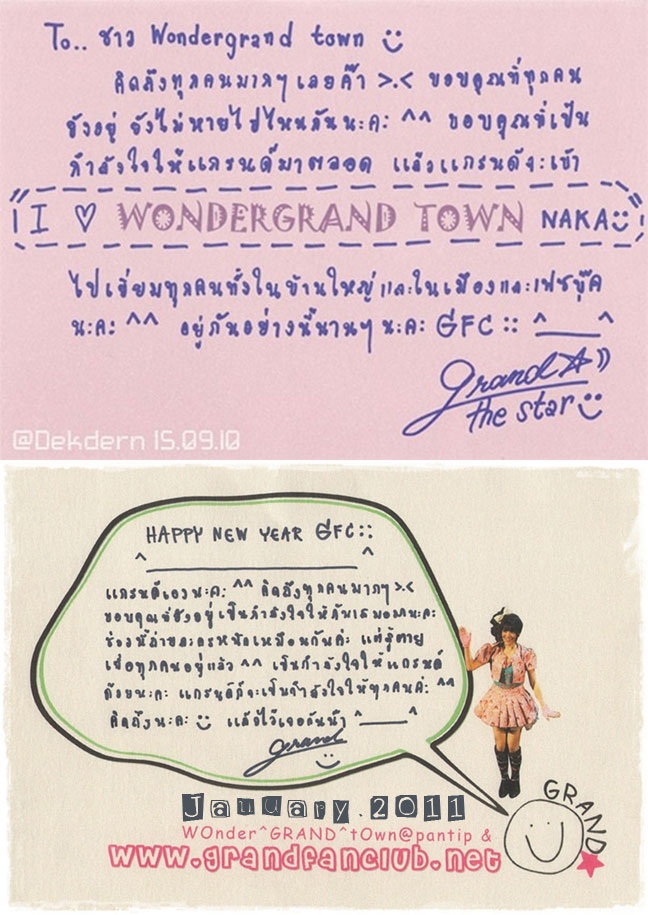 To.. ชาว Wondergrand town
คิดถึงทุกคนมากๆเลยค๊า >.< ขอบคุณที่ทุกคน
ยังอยู่ ยังไม่หายไปไหนกันนะคะ ^^ ขอบคุณที่เป็น
กำลังใจให้แกรนด์มาตลอด แล้วแกรนด์จะเข้า
I ♡ WONDERGRAND TOWN NAKA
ไปเยี่ยมทุกคนทั้งในบ้านใหญ่และในเมืองและเฟซบุ๊ค
นะคะ ^^ อยู่กันอย่างนี้นานๆนะคะ GFC :: ^____^
grand☆))
the star
@Dekdern 15.09.10
HAPPY NEW YEAR GFC::
^____^
แกรนด์เองนะคะ ^^ คิดถึงทุกคนมากๆ >.<
ขอบคุณที่ยังอยู่เป็นกำลังใจให้กันเสมอนะคะ
ช่วงนี้ถ่ายละครหนักเหมือนกันค่ะ แต่สู้ตาย
เพื่อทุกคนอยู่แล้ว ^^ เป็นกำลังใจให้แกรนด์
ด้วยนะคะ แกรนด์ก็จะเป็นกำลังใจให้ทุกคนค่ะ ^^
คิดถึงนะคะ แล้วไว้เจอกันน๊า ^____^
grand
GRAND
January.2011
WOnder^GRAND^tOwn@pantip &
www.grandfanclub.net